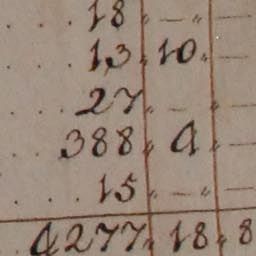 . . . 18 „ — „ —
. . . 13 „ 10 „ —
. . . 27 „ — „ —
. . . 388 „ 4 „ —
. . . 15 „ — „ —
4277 „ 18 „ 8